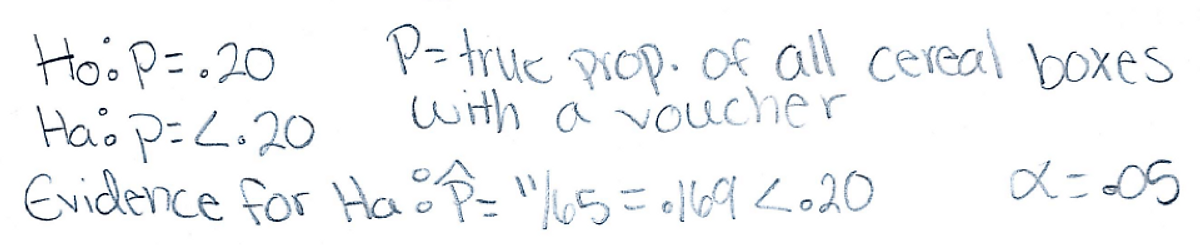 Ho: p = .20 P = true prop. of all cereal boxes
Ha: p = < .20 with a voucher
Evidence for Ha: p̂ = 11/65 = .169 < .20 α = .05